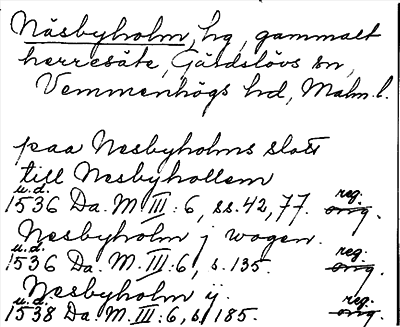 Näsbyholm, hg, gammalt
herresäte, Gärdslövs sn,
Vemmenhögs hd, Malm. l.
paa Nesbyholms slott
till Nesbyhollem
u.d. reg.
1536 Da. M III: 6, ss. 42, 77. orig.
Nesbyholm j wogen.
u.d. reg.
1536 Da. M. III: 6, s. 135. orig.
Nesbyholm ij.
u.d. reg.
1538 Da. M. III: 6, s. 185. orig.